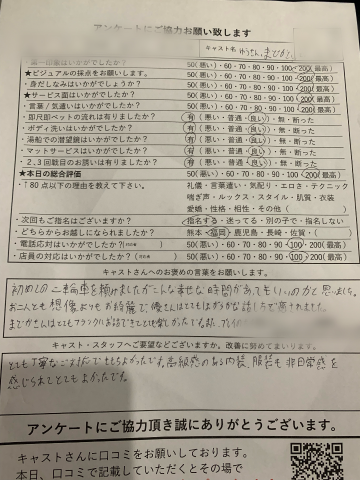 アンケートにご協力お願い致します
キャスト名 ゆうさん、まどかさん
・第一印象はいかがでしたか？ 50(悪い)・60・70・80・90・100・200(最高)
★ビジュアルの採点をお願いします。 50(悪い)・60・70・80・90・100・200(最高)
・身だしなみはいかがでしょうか？ 50(悪い)・60・70・80・90・100・200(最高)
★サービス面はいかがでしたか？ 50(悪い)・60・70・80・90・100・200(最高)
・言葉／気遣いはいかがでしたか？ 50(悪い)・60・70・80・90・100・200(最高)
・即尺即ベットの流れは有りましたか？ 有(悪い・普通・良い)・無・断った
・ボディ洗いはいかがでしたか？ 有(悪い・普通・良い)・無・断った
・湯船での潜望鏡はいかがでしたか？ 有(悪い・普通・良い)・無・断った
・マットサービスはいかがでしたか？ 有(悪い・普通・良い)・無・断った
・2,3回数目のお誘いは有りましたか？ 有(悪い・普通・良い)・無・断った
★本日の総合評価 50(悪い)・60・70・80・90・100・200(最高)
・↑80点以下の理由を教えて下さい。 礼儀・言葉遣い・気配り・エロさ・テクニック
喘ぎ声・ルックス・スタイル・肌質・衣装
愛嬌・性格・相性・その他( )
・次回もご指名はございますか？ 指名する・迷ってる・別の子で・指名しない
・どちらからお越しになられましたか？ 熊本・福岡・鹿児島・長崎・佐賀・( )
・電話応対はいかがでしたか？ 50(悪い)・60・70・80・90・100・200(最高)
・店員の対応はいかがでしたか？ 50(悪い)・60・70・80・90・100・200(最高)
キャストさんへのお褒めの言葉をお願いします。
初めての二輪車を頼みましたがこんな幸せな時間があってもいいのかと思いました。
お二人とも想像よりもお綺麗で、優さんはとてもはがらかな話し方で癒されました。
まどかさんはとてもフランクにお話できてとても楽しかったです。
キャスト・スタッフへご要望などございますか。改善に努めてまいります。
とても丁寧なご対応できもちよかったです。高級感のある内装、服装も非日常感を
感じられてとてもよかったです。
アンケートにご協力頂き誠にありがとうございます。
キャストさんに口コミをお願いしております。
本日、口コミで記載していただくとその場で